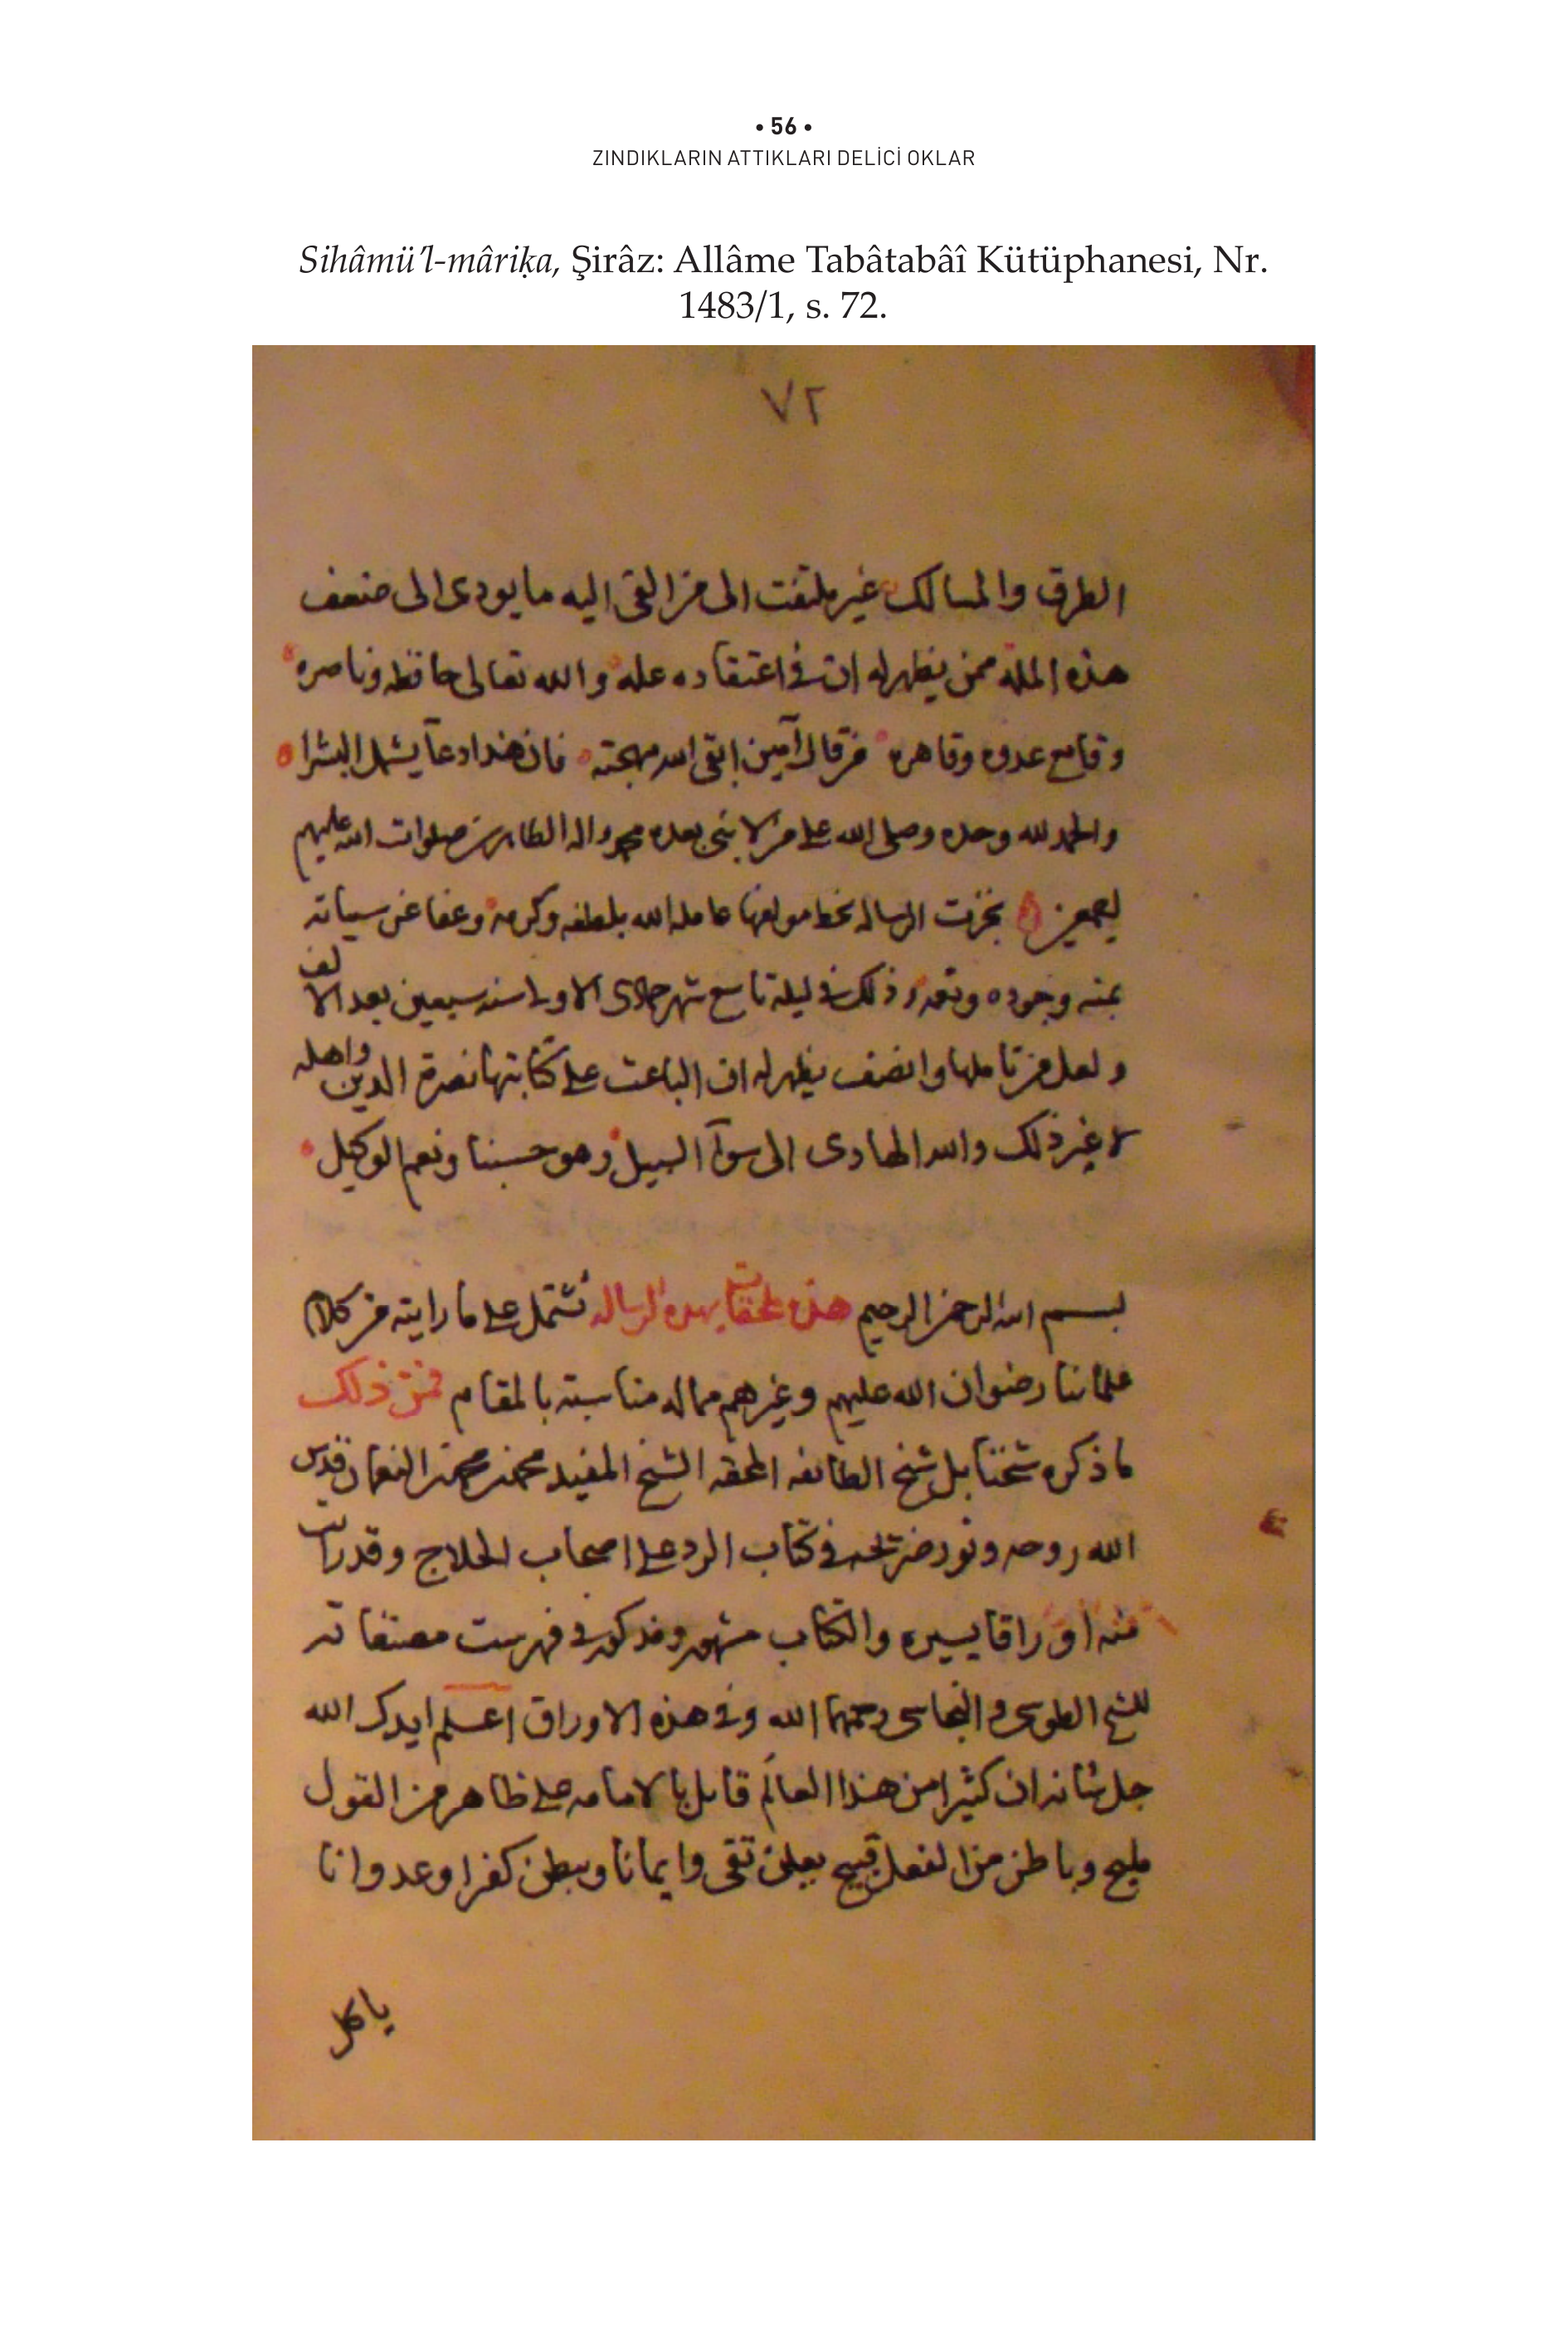 • 56 •
ZINDIKLARIN ATTIKLARI DELİCİ OKLAR
Sihâmü’l-mâriḳa, Şirâz: Allâme Tabâtabâî Kütüphanesi, Nr.
1483/1, s. 72.
٧٢
الطرق والمسالك غير ملتفت الى من القى اليه ما يودى الى ضعف
هذه الملة ممن يظهر له ان فى اعتقاده عله والله تعالى حافظه وناصره
وقامع عدوه وقاهره من قال آمين ابقى الله مهجته فان هذا دعآ يشمل البشرا
والحمد لله وحده وصلى الله على من لا نبى بعده محمد واله الطاهرين صلوات الله عليهم
اجمعين نجزت الرساله بخط مولفها عامله الله بلطفه وكرمه وعفا عن سياته
بمنه وجوده وذلك فى ليلة تاسع شهر جمادى الاولى سنه سبعين بعد الالف
ولعل من تاملها وانصف يظهر له ان الباعث على كتابتها نصرة الدين واهله
لا غير ذلك والله الهادى الى سوآ السبيل وهو حسبنا ونعم الوكيل
بسم الله الرحمن الرحيم هذه ملحقات بهذه الرساله تشتمل على ما رايته من كلام
علمائنا رضوان الله عليهم وغيرهم مما له مناسبته بالمقام فمن ذلك
ما ذكره شيخنا بل شيخ الطائفه المحقه الشيخ المفيد محمد بن محمد بن النعمان قدس
الله روحه ونور ضريحه فى كتاب الرد على اصحاب الحلاج وقد رايت
منه اوراقا يسيره والكتاب مشهور ومذكور فى فهرست مصنفاته
للشيخ الطوسى والنجاشى رحمهما الله وفى هذه الاوراق اعلم ايدك الله
جل شانه ان كثيرا من هذا العالَم قايل بالامامه على ظاهر من القول
مليح وباطن من الفعل قبيح يعلن تقى وايمانا ويبطن كفرا وعدوانا
ياكل